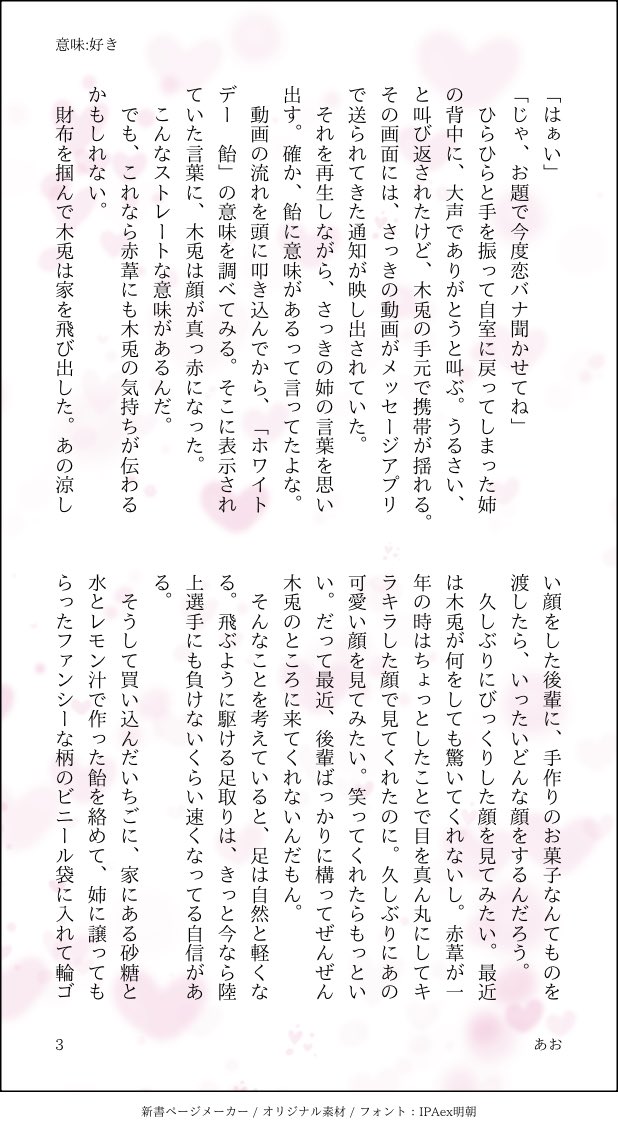 意味:好き
「はぁい」
「じゃ、お題で今度恋バナ聞かせてね」
ひらひらと手を振って自室に戻ってしまった姉
の背中に、大声でありがとうと叫ぶ。うるさい、
と叫び返されたけど、木兎の手元で携帯が揺れる。
その画面には、さっきの動画がメッセージアプリ
で送られてきた通知が映し出されていた。
それを再生しながら、さっきの姉の言葉を思い
出す。確か、飴に意味があるって言ってたよな。
動画の流れを頭に叩き込んでから、「ホワイト
デー　飴」の意味を調べてみる。そこに表示され
ていた言葉に、木兎は顔が真っ赤になった。
こんなストレートな意味があるんだ。
でも、これなら赤葦にも木兎の気持ちが伝わる
かもしれない。
財布を掴んで木兎は家を飛び出した。あの涼し
い顔をした後輩に、手作りのお菓子なんてものを
渡したら、いったいどんな顔をするんだろう。
久しぶりにびっくりした顔を見てみたい。最近
は木兎が何をしても驚いてくれないし。赤葦が一
年の時はちょっとしたことで目を真ん丸にしてキ
ラキラした顔で見てくれたのに。久しぶりにあの
可愛い顔を見てみたい。笑ってくれたらもっとい
い。だって最近、後輩ばっかりに構ってぜんぜん
木兎のところに来てくれないんだもん。
そんなことを考えていると、足は自然と軽くな
る。飛ぶように駆ける足取りは、きっと今なら陸
上選手にも負けないくらい速くなってる自信があ
る。
そうして買い込んだいちごに、家にある砂糖と
水とレモン汁で作った飴を絡めて、姉に譲っても
らったファンシーな柄のビニール袋に入れて輪ゴ
3
あお
新書ページメーカー / オリジナル素材 / フォント：IPAex明朝